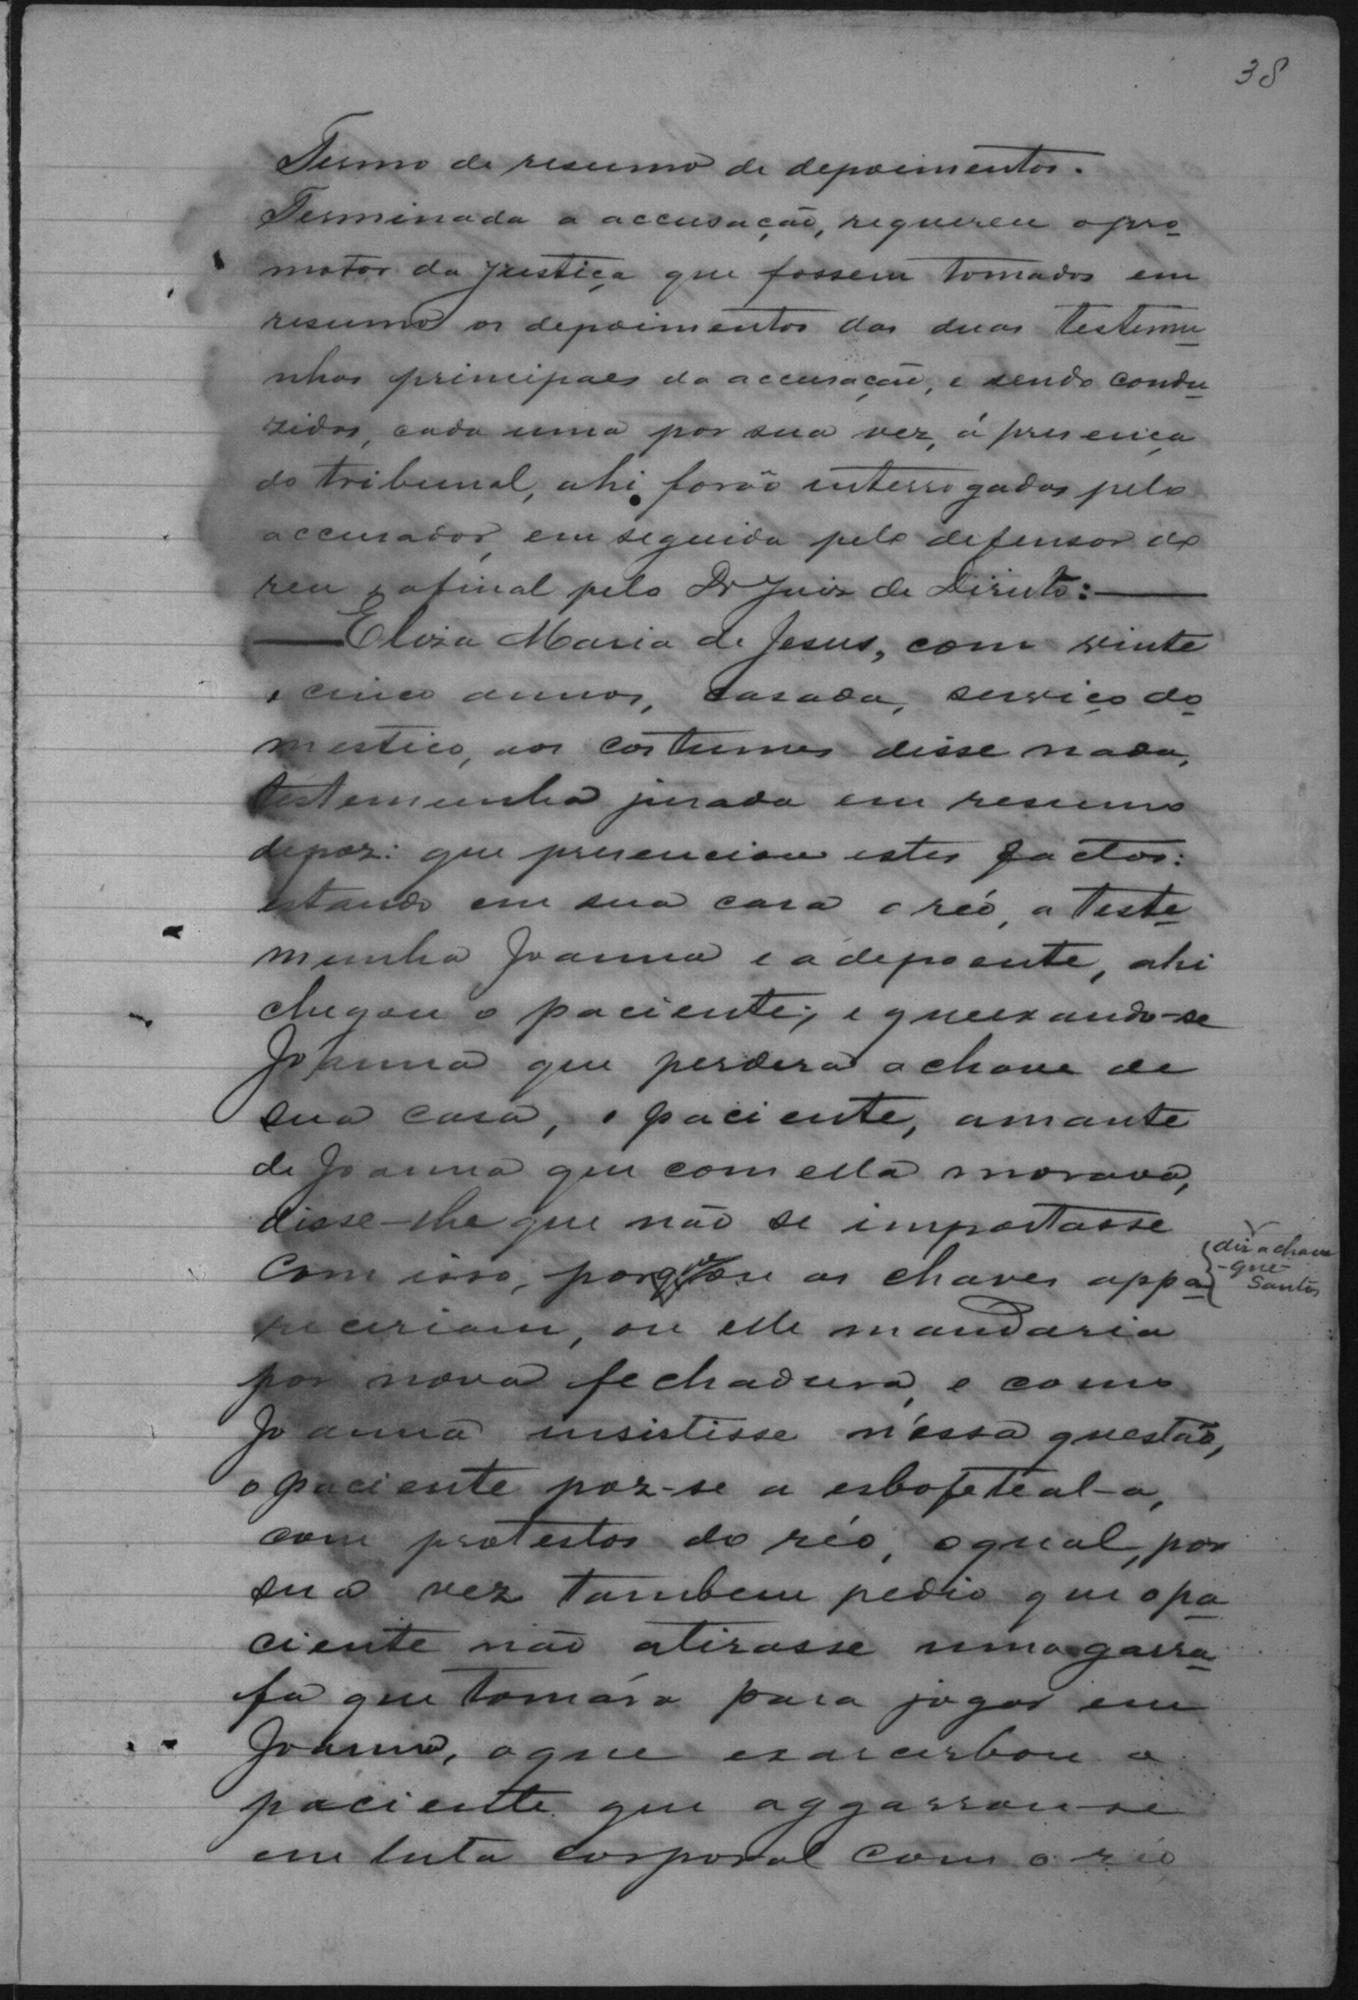 38
Termo de resumo de depoimentos.
Terminada a accusação, requereu o pro
motor da justiça que fossem tomados em
resumo os depoimentos das duas testemu
nhas principaes da accusação, e sendo condu
zidas, cada uma por sua vez, á presença
do tribunal, ahi forão interrogadas pelo
accusador, em seguida pelo defensor do
reu e afinal pelo Dr Juiz de Direito:
Eliza Maria de Jesus, com vinte
e cinco annos, casada, serviço do
mestico, aos costumes disse nada,
testemunha jurada em resumo
depoz: que presenciou estes factos:
estando em sua casa o réo, a teste
munha Joanna e a depoente, ahi
chegou o paciente; e queixando-se
Joanna que perdera a chave de
sua casa, o paciente, amante
de Joanna que com ella morava,
disse-lhe que não se importasse
com isso, porque as chaves appa
receriam, ou elle mandaria
por nova fechadura, e como
Joanna insistisse n'essa questão,
o paciente poz-se a esbofeteal-a,
com protestos do réo, o qual, por
sua vez tambem pedio que o pa
ciente não atirasse uma garra
fa que tomára para jogar em
Joanna, o que exarcerbou o
paciente que aggarrou-se
em luta corporal com o réo
diz a chave
-que-
Santos